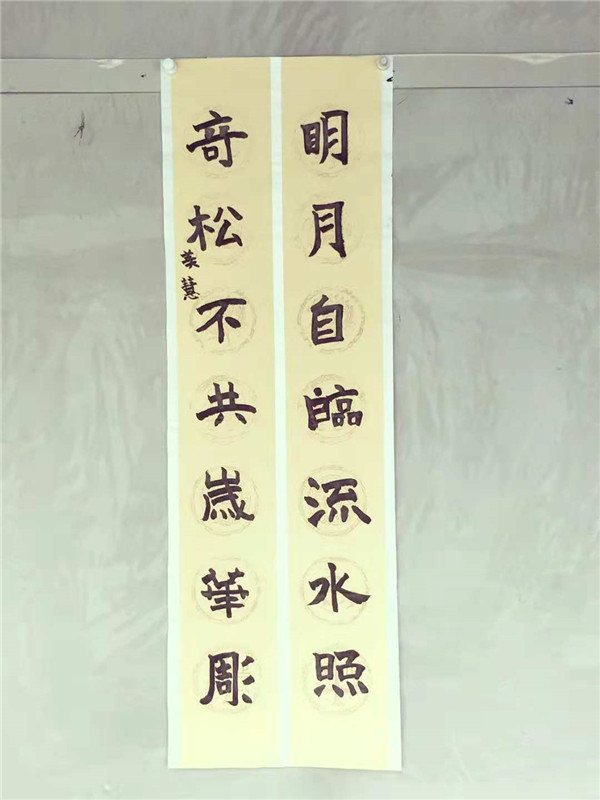 明月自臨流水照
奇松不共歲華彫
美慧